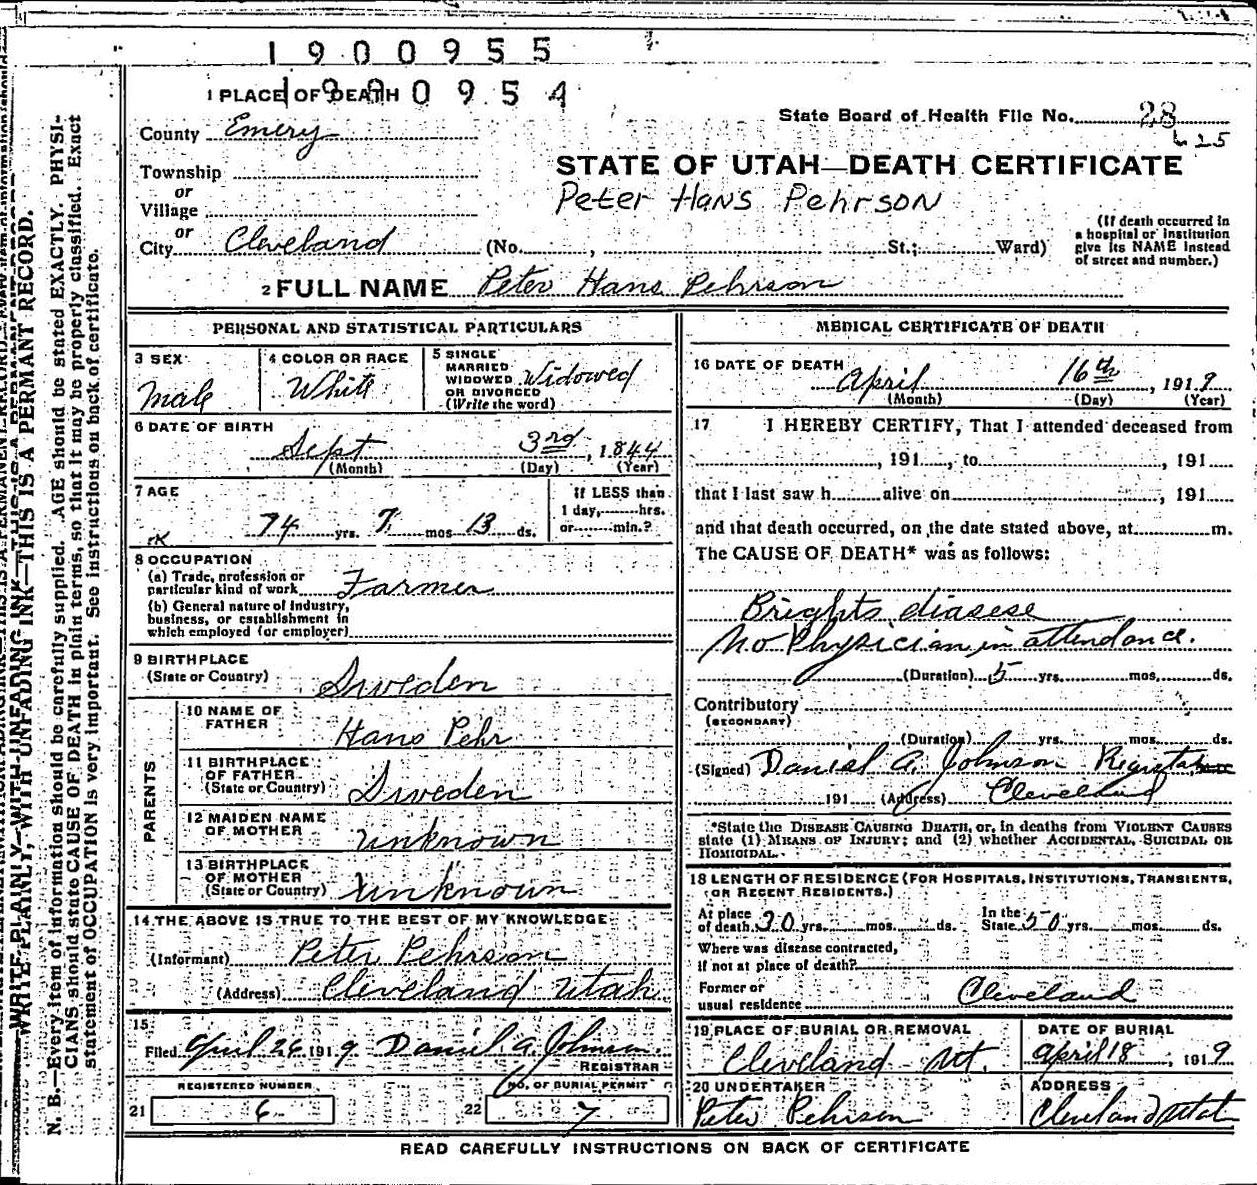 1900955
1900954
1 PLACE OF DEATH
County Emery
Township
or
Village
or
City Cleveland (No. , St.; Ward)
State Board of Health File No. 28
625
STATE OF UTAH—DEATH CERTIFICATE
Peter Hans Pehrson
(If death occurred in
a hospital or institution
give its NAME instead
of street and number.)
2 FULL NAME Peter Hans Pehrson
PERSONAL AND STATISTICAL PARTICULARS
3 SEX
Male
4 COLOR OR RACE
White
5 SINGLE
MARRIED
WIDOWED
OR DIVORCED
(Write the word)
Widowed
6 DATE OF BIRTH
Sept 3rd, 1844
(Month) (Day) (Year)
7 AGE
74 yrs. 7 mos 13 ds.
If LESS than
1 day, hrs.
or min.?
8 OCCUPATION
(a) Trade, profession or
particular kind of work Farmer
(b) General nature of Industry,
business, or establishment in
which employed (or employer)
9 BIRTHPLACE
(State or Country) Sweden
PARENTS
10 NAME OF
FATHER Hans Pehr
11 BIRTHPLACE
OF FATHER
(State or Country) Sweden
12 MAIDEN NAME
OF MOTHER unknown
13 BIRTHPLACE
OF MOTHER
(State or Country) unknown
14 THE ABOVE IS TRUE TO THE BEST OF MY KNOWLEDGE
(Informant) Peter Pehrson
(Address) Cleveland Utah
15
Filed April 26 1919 Daniel A. Johnson
REGISTRAR
REGISTERED NUMBER
21 6
NO. OF BURIAL PERMIT
22 7
MEDICAL CERTIFICATE OF DEATH
16 DATE OF DEATH
April 16th, 1919
(Month) (Day) (Year)
17 I HEREBY CERTIFY, That I attended deceased from
, 191 , to , 191
that I last saw h alive on , 191
and that death occurred, on the date stated above, at m.
The CAUSE OF DEATH* was as follows:
Brights diasese
No Physician in attendance.
(Duration) 5 yrs. mos. ds.
Contributory
(SECONDARY)
(Duration) yrs. mos. ds.
(Signed) Daniel A. Johnson Registrar
191 (Address) Cleveland
*State the DISEASE CAUSING DEATH, or, in deaths from VIOLENT CAUSES
state (1) MEANS OF INJURY; and (2) whether ACCIDENTAL, SUICIDAL OR
HOMICIDAL.
18 LENGTH OF RESIDENCE (FOR HOSPITALS, INSTITUTIONS, TRANSIENTS,
OR RECENT RESIDENTS.)
At place
of death 30 yrs. mos. ds.
In the
State 50 yrs. mos. ds.
Where was disease contracted,
if not at place of death?
Former or
usual residence Cleveland
19 PLACE OF BURIAL OR REMOVAL
Cleveland Ut.
DATE OF BURIAL
April 18, 1919
20 UNDERTAKER
Peter Pehrson
ADDRESS
Cleveland Utah
READ CAREFULLY INSTRUCTIONS ON BACK OF CERTIFICATE
WRITE PLAINLY, WITH UNFADING INK—THIS IS A PERMANT RECORD.
N. B.—Every item of information should be carefully supplied. AGE should be stated EXACTLY. PHYSI-
CIANS should state CAUSE OF DEATH in plain terms, so that it may be properly classified. Exact
statement of OCCUPATION is very important. See instructions on back of certificate.